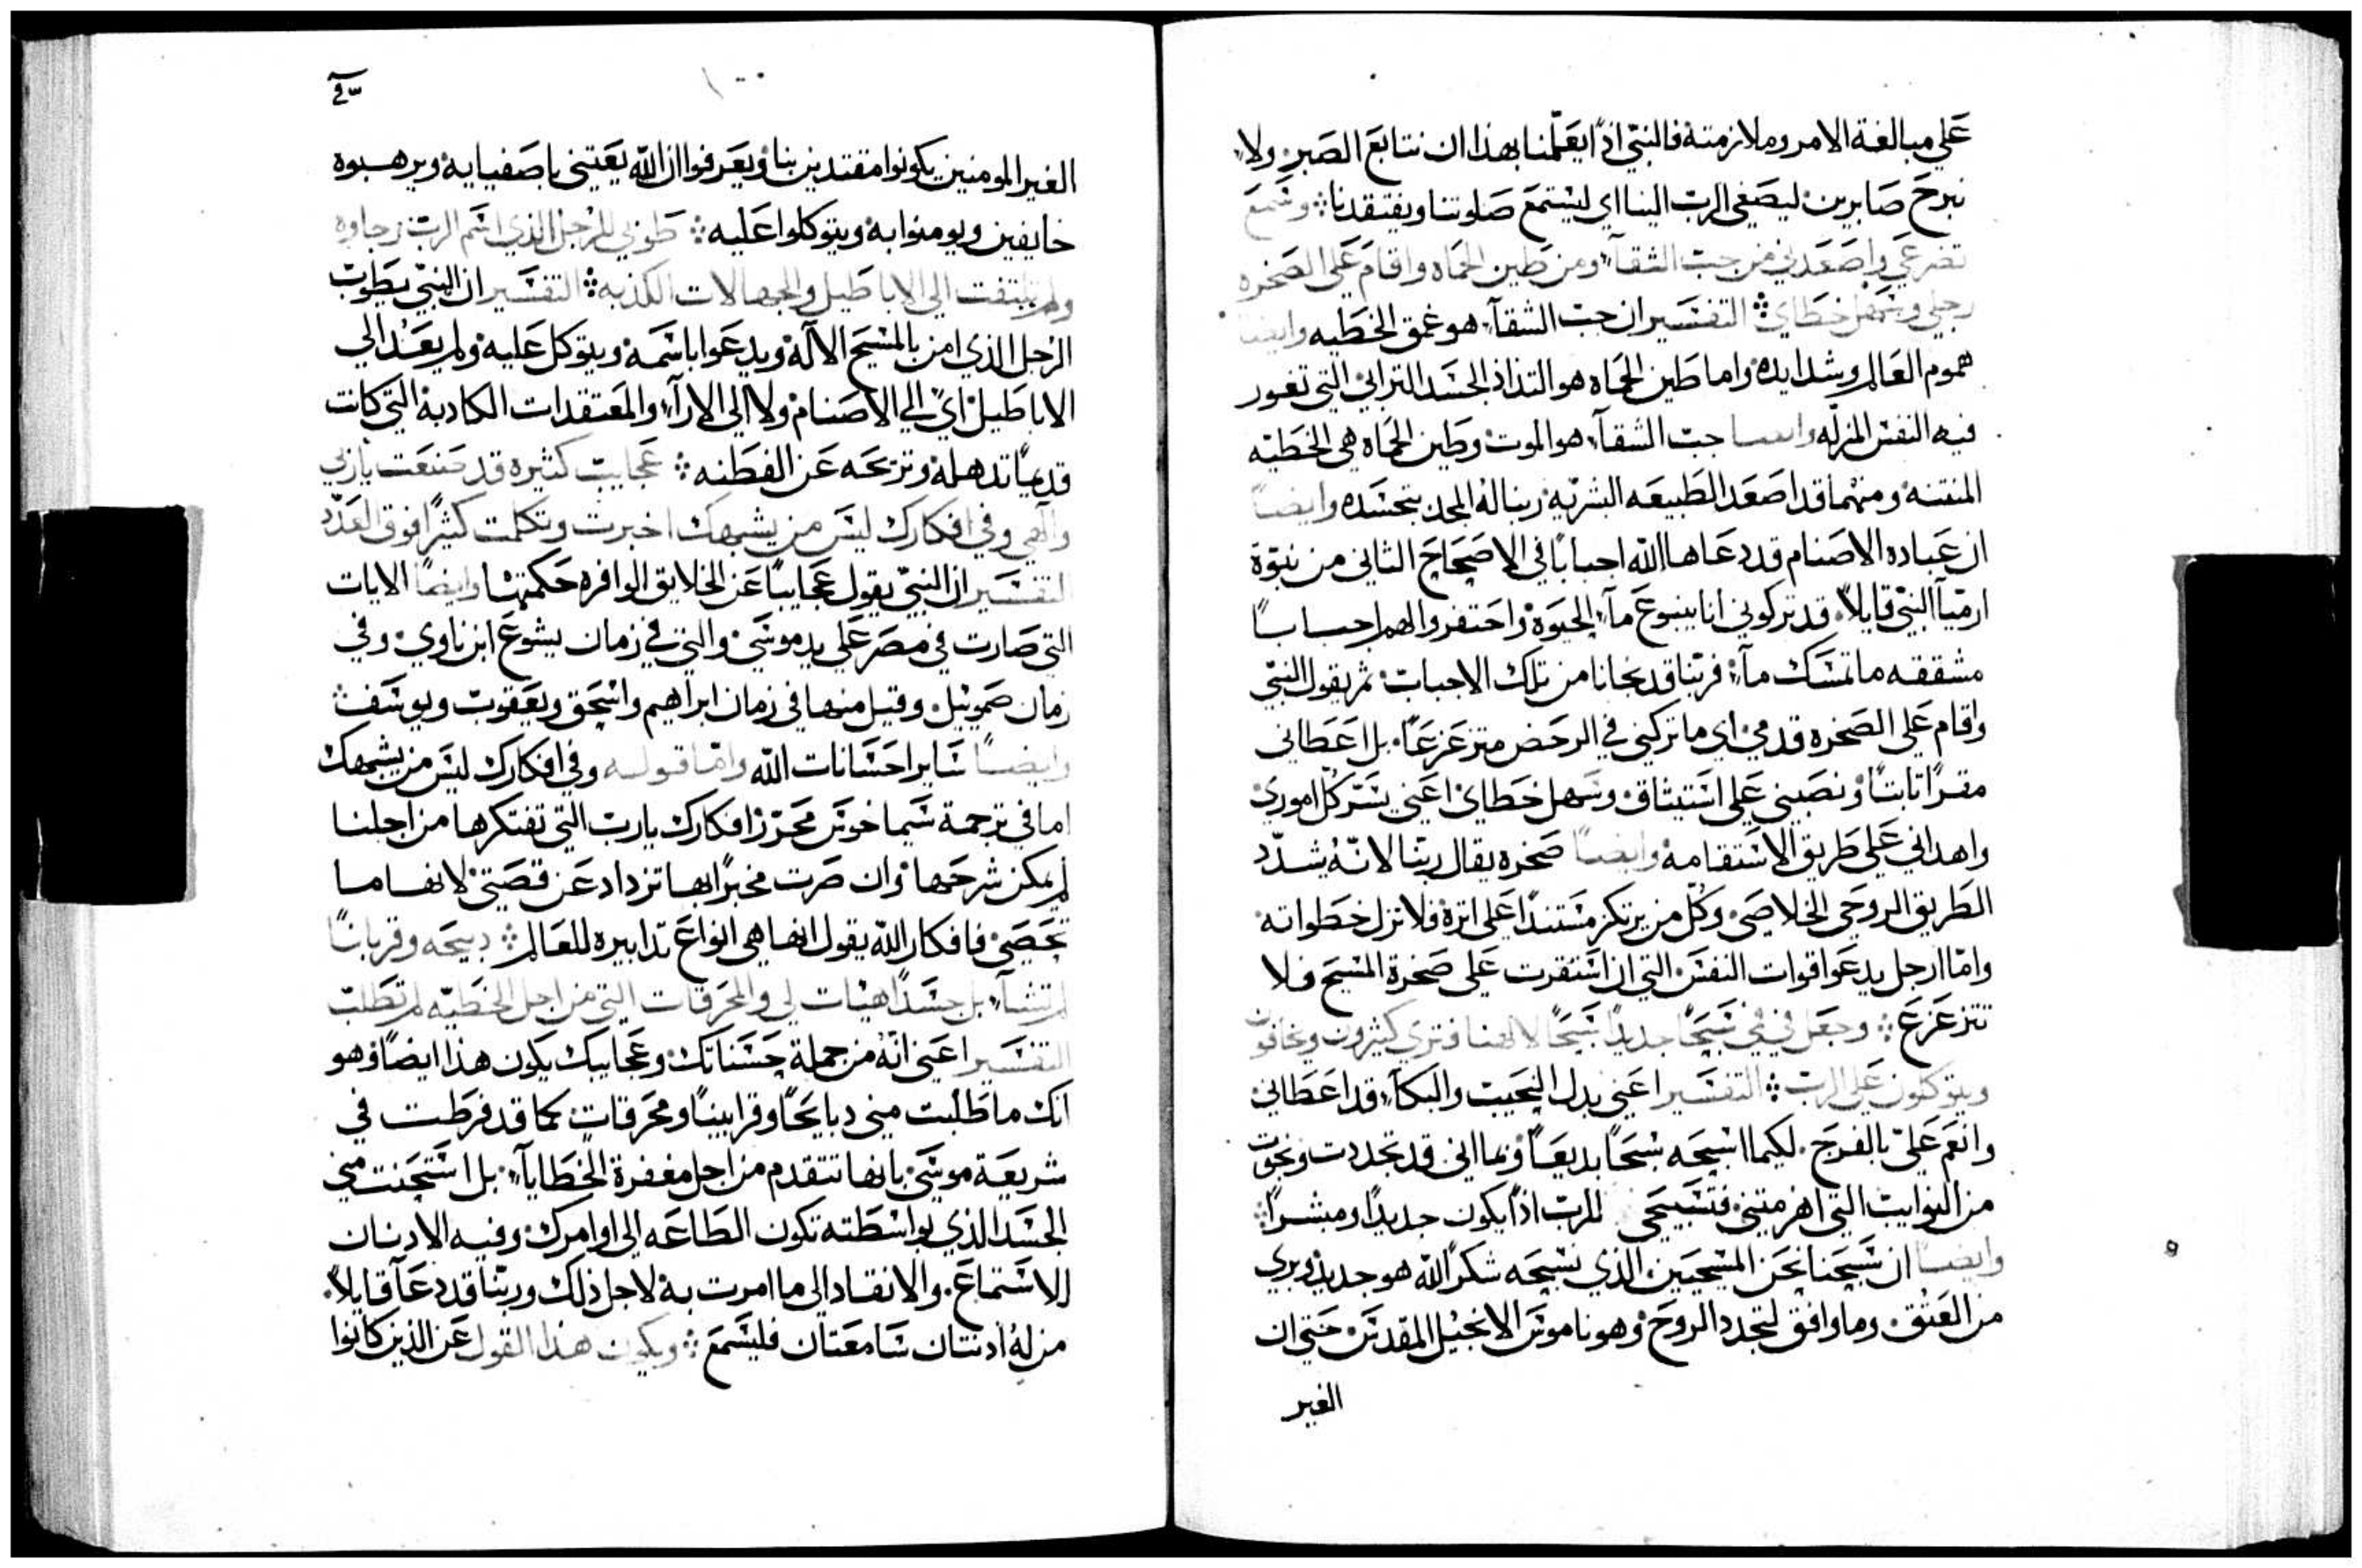 على مبالغة الامر وملازمتة فالنبي اذًا يعلّمنا بهذا ان نتابع الصبر ولا
نبرح صابرين ليصغى الرب الينا اي ليستمع صلوتنا ويفتقدنا وسمع
تضرعي واصعدني من جب الشقآ ومن طين الحماه واقام على الصخره
رجلي وسهل خطاي التفسير ان جب الشقآ هو عمق الخطيه وايضا
هموم العالم وشدايده واما طين الحماه هو التذاذ الجسد الترابي التي تغور
فيه النفس المزلّه وايضا جب الشقآ هو الموت وطين الحماه هي الخطيّه
المنتنه ومنهما قد اصعد الطبيعه البشريّه ربنا له المجد بتجسده وايضًا
ان عباده الاصنام قد دعاها الله اجبابًا في الاصحاح الثاني من نبوّة
ارميّا النبي قايلاً قد تركوني انا ينبوع مآ الحيوة واحتفروا لهم احسابًا
مشققه ما تمسك مآ فربّنا قد نجانا من تلك الاجباب ثم يقول النبي
واقام على الصخره قدمي اي ما تركني في الرحض متزعزعًا بل اعطاني
مقرًا ثابتًا ونصبني على استيثاق وسهل خطاي اعني يسّر كل اموري
واهداني على طريق الاستقامه وايضًا صخره يقال ربّنا لانّه يشدّد
الطريق الروحي الخلاصي وكلّ من يرتكز مستندًا على اثره فلا تزل خطواته
وامّا ارجل يدعوا قوات النفس التي ان استقرت على صخرة المسيح فلا
تتزعزع وجعل في في تسبحًا جديدًا تسبحًا لالهنا فترى كثيرون ويخافون
ويتوكلون على الرب التفسير اعني بدل النحيب والبكآ قد اعطاني
وانعم عليّ بالفرج لكيما اسبحه سبحًا بديعًا وبما اني قد تجددت ونجوت
من النوايب التي اهرمتني فتسبيحي للرب اذًا يكون جديدًا ومبشرًا
وايضًا ان تسبحنا نحن المسيحيين الذي نسبحه شكرًا لله هو جديد وبري
من العتق وما وافق لتجدد الروح وهو ناموس الانجيل المقدس حتى ان
الغير
الغير المومنين يكونوا مقتدين بنا ويعرفوا ان الله يعتني باصفيايه ويرهبوه
خايفين ويومنوا به ويتوكلوا عليه طوبى للرجل الذي اسم الرب رجاوه
ولم يلتفت الى الاباطيل والجهالات الكذبه التفسير ان النبي يطوب
الرجل الذي امن بالمسيح الاله ويدعوا باسمه ويتوكل عليه ولم يعد الى
الاباطيل اي الى الاصنام ولا الى الارآ والمعتقدات الكادبة التي كانت
قديمًا تدهله وتزيحه عن الفطنه عجايب كثيرة قد صنعت يا ربي
والهي وفي افكارك ليس من يشبهك اخبرت وتكلمت كثيرًا فوق العدد
التفسير ان النبي يقول عجايبًا عن الخلايق الوافره حكمتها وايضًا الايات
التي صارت في مصر على يد موسى والتي في زمان يشوع ابن ناوي وفي
زمان صموئيل وقيل منها في زمان ابراهيم واسحق ويعقوب ويوسف
وايضًا ساير احسانات الله وامّا قوله وفي افكارك ليس من يشبهك
اما في ترجمة سيماخوس محرّر افكارك يا رب التي تفتكرها من اجلنا
لم يمكن شرحها وان صرت مخبرًا بها تزداد عن قصتي لانها ما
تحصى فافكار الله يقول انها هي انواع تدابيره للعالم دبيحه وقربانًا
لم تشآ بل جسدًا هيات لي والمحرقات التي من اجل الخطيّه لم تطلب
التفسير اعني انه من جملة حسناتك وعجايبك يكون هذا ايضًا وهو
انك ما طلبت مني دبايحًا وقرابينًا ومحرقات كما قد فرطت في
شريعة موسى بانها تتقدم من اجل مغفرة الخطايآ بل استحنت مني
الجسد الذي بواسطته تكون الطاعه الى اوامرك وفيه الادنان
للاستماع والانقاد الى ما امرت به لاجل ذلك وربّنا قد دعآ قايلاً
من له ادنتان سامعتان فليسمع ويكون هذا القول عن الذين كانوا